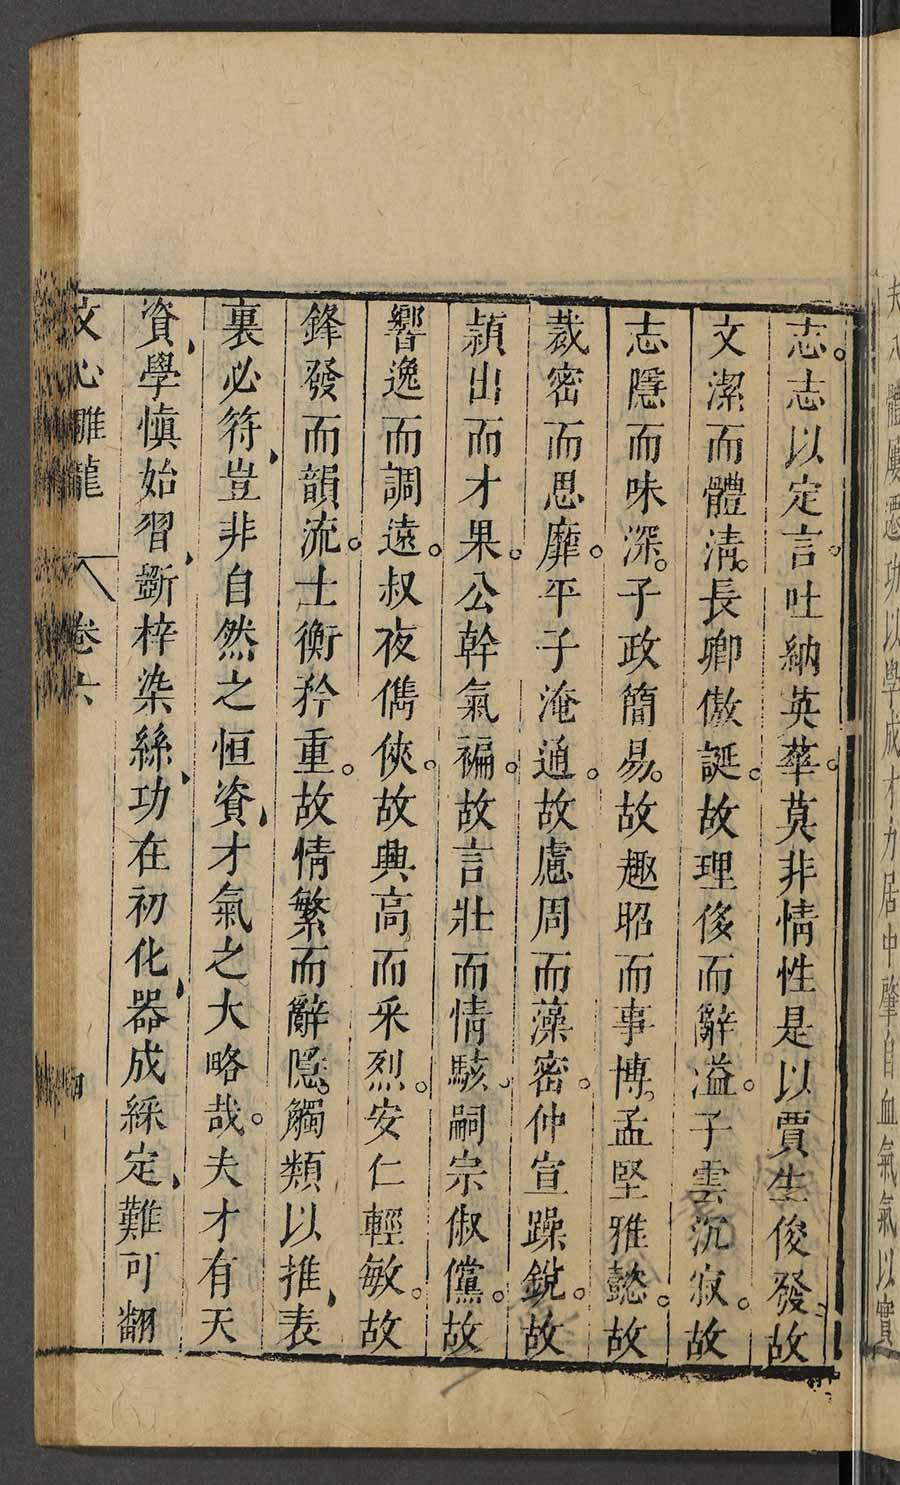 夫八體屢遷功以學成才力居中肇自血氣氣以實
志。志以定言。吐納英華。莫非情性是以賈生俊發。故
文潔而體淸。長卿傲誕。故理侈而辭溢。子雲沉寂。故
志隱而味深。子政簡易。故趣昭而事博。孟堅雅懿。故
裁密而思靡。平子淹通。故慮周而藻密。仲宣躁銳。故
頴出而才果。公幹氣褊。故言壯而情駭。嗣宗俶儻。故
響逸而調遠。叔夜儁俠。故興高而采烈。安仁輕敏。故
鋒發而韻流。士衡矜重。故情繁而辭隱。觸類以推、表
裏必符、豈非自然之恒資、才氣之大略哉。夫才有天
資、學愼始習、斲梓染絲、功在初化、器成綵定、難可翻
文心雕龍 卷六 四